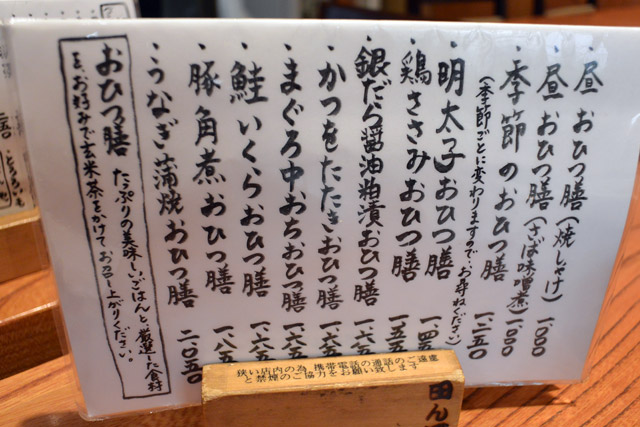 ・昼 おひつ膳（焼しゃけ） 一、〇〇〇
・昼 おひつ膳（さば味噌煮） 一、〇〇〇
・季節のおひつ膳 一、二五〇
（季節ごとに変わりますので、お尋ねください）
・明太子おひつ膳
・鶏ささみおひつ膳
・銀だら醤油粕漬おひつ膳
・かつをたたきおひつ膳
・まぐろ中おちおひつ膳
・鮭いくらおひつ膳 一、六五
・豚角煮おひつ膳 一、八五
・うなぎ蒲焼おひつ膳 二、〇五〇
おひつ膳 たっぷりの美味しいごはんと厳選した食材
をお好みで玄米茶をかけてお召し上がりください。
狭い店内の為、携帯電話の通話のご遠慮
と禁煙のご協力をお願い致します
田ん